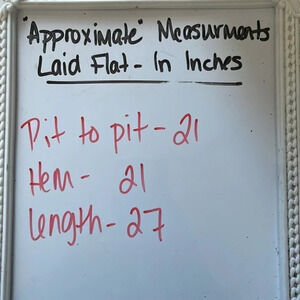 "Approximate" Measurments
Laid Flat - In Inches
Pit to pit - 21
Hem - 21
length - 27